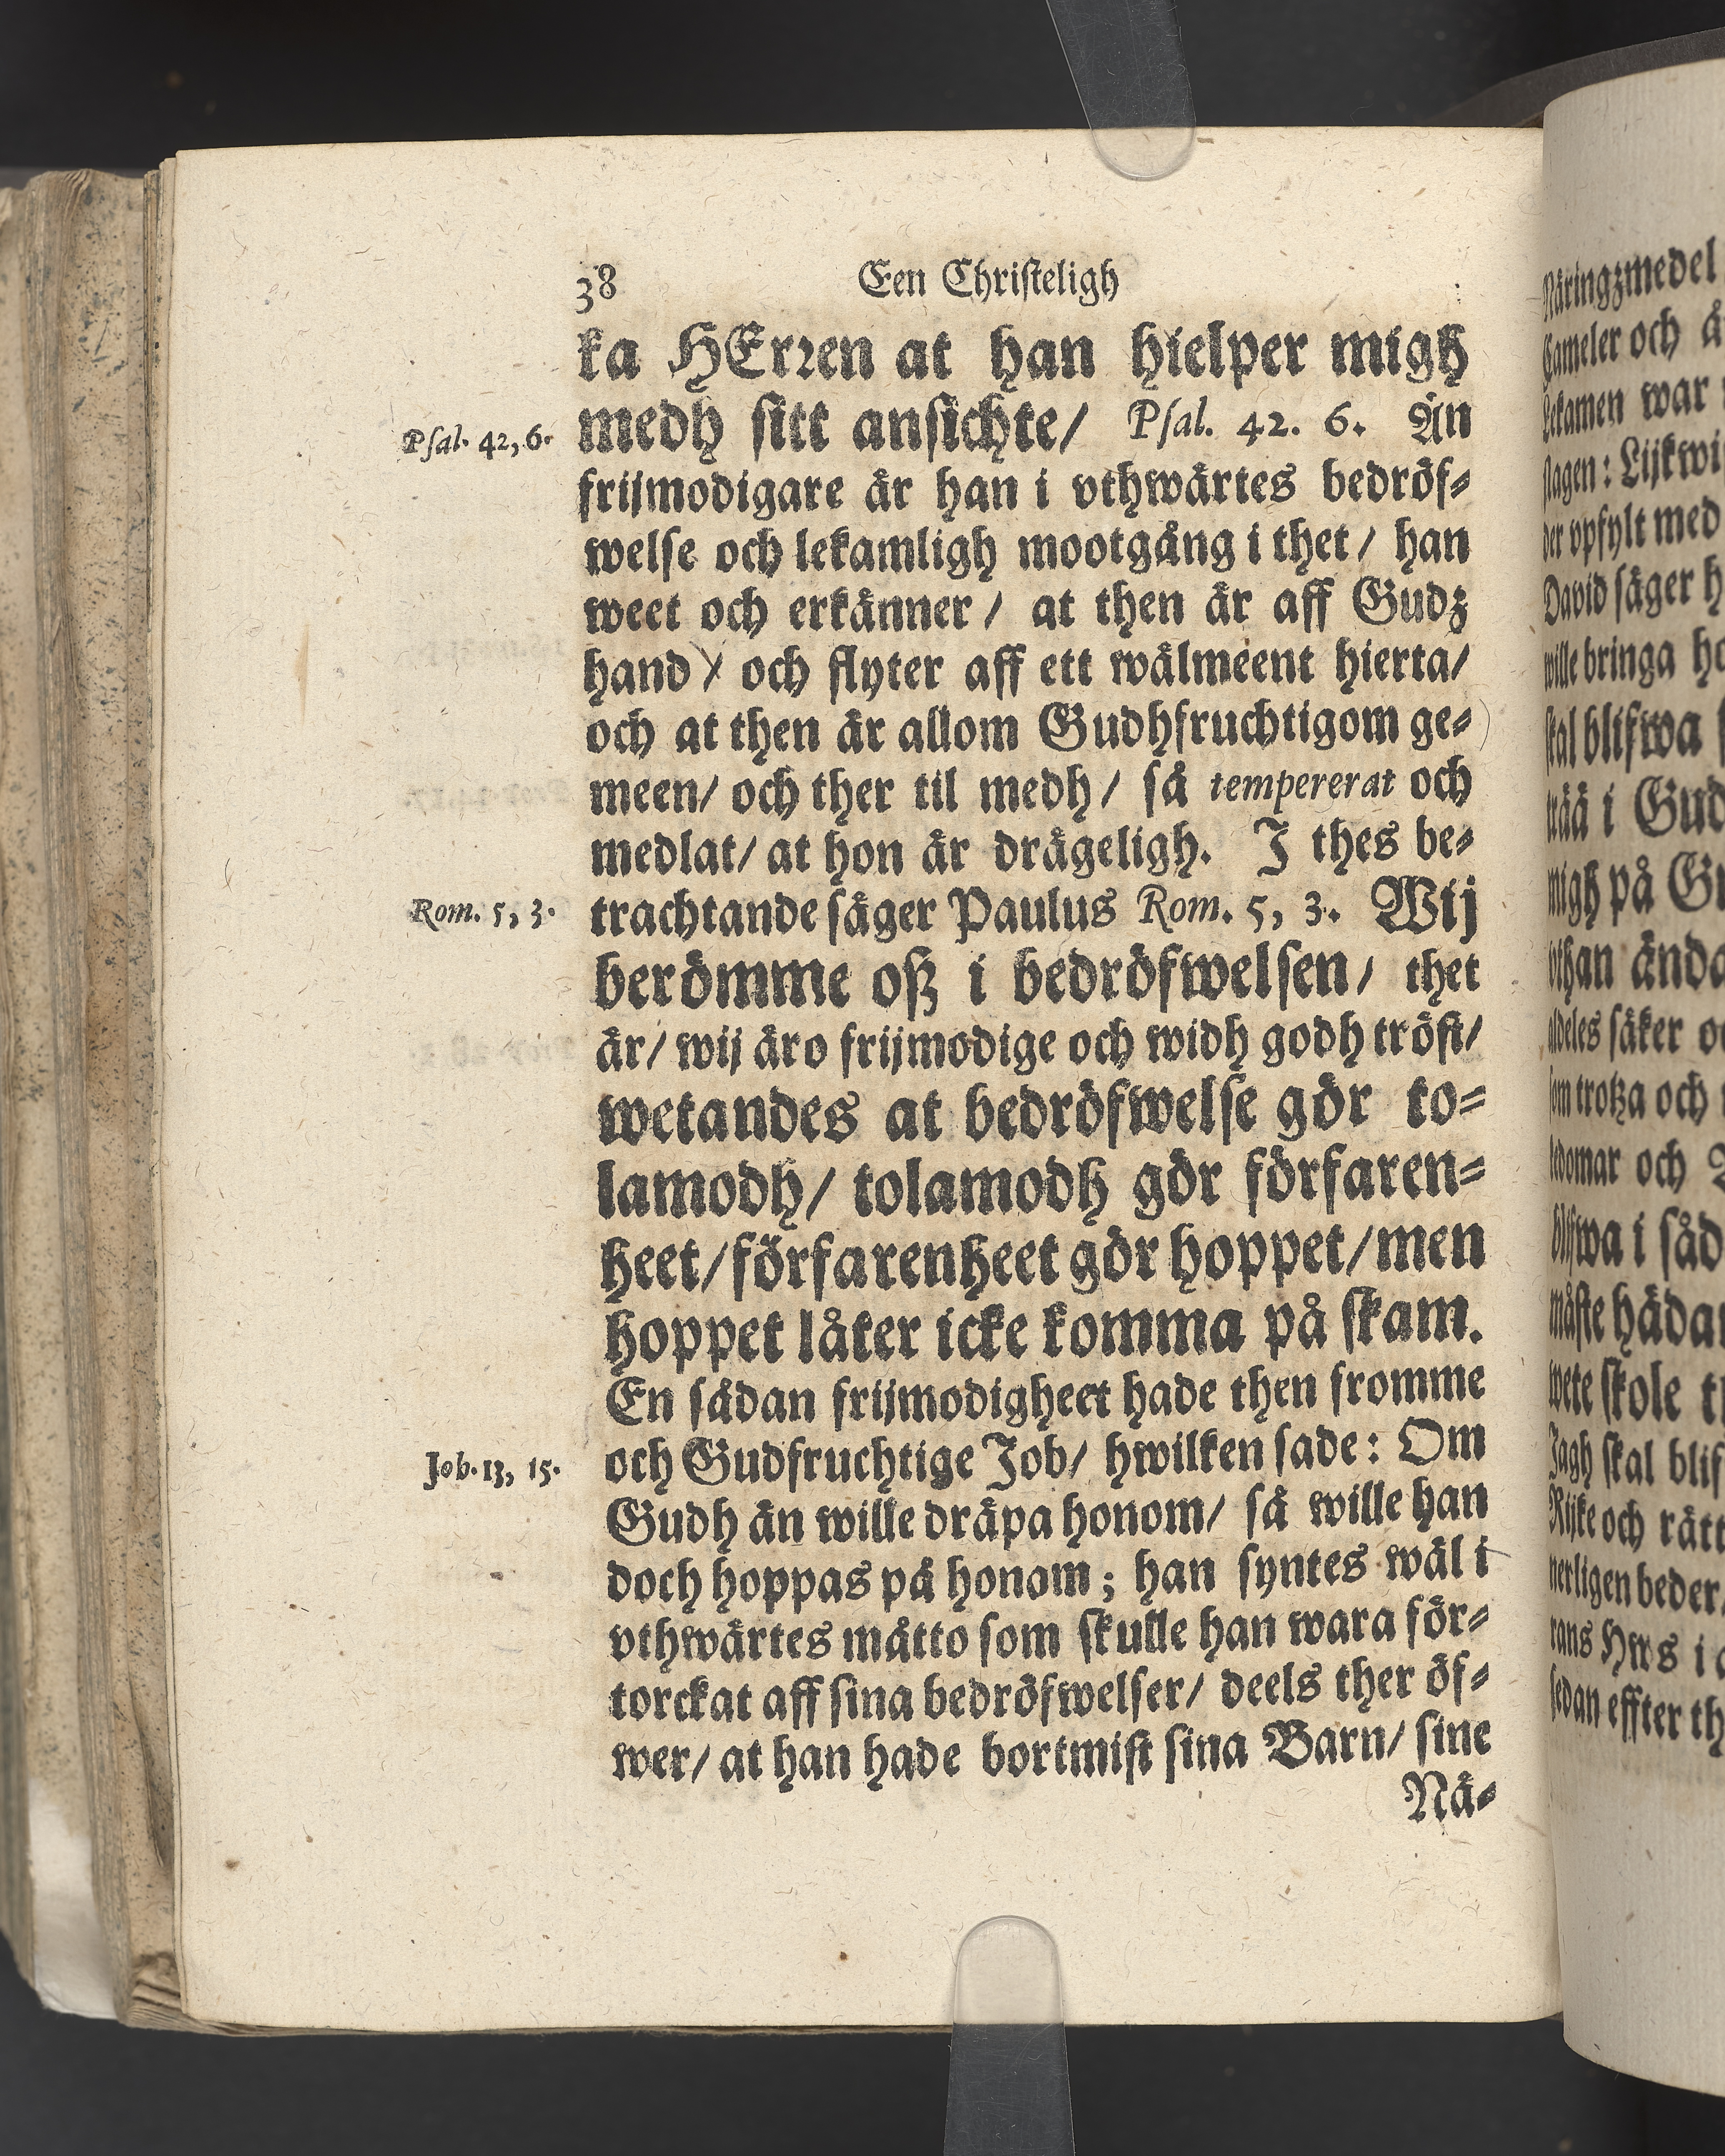 38 Een Christeligh
ka HErren at han hielper migh
Psal. 42, 6. medh sitt ansichte/ Psal. 42. 6. Än
frijmodigare är han i vthwärtes bedröf-
welse och lekamligh mootgång i thet/ han
weet och erkänner/ at then är aff Gudz
hand/ och flyter aff ett wälmeent hierta/
och at then är allom Gudhfruchtigom ge-
meen/ och ther til medh/ så tempererat och
medlat/ at hon är drägeligh. I thes be-
Rom. 5, 3. trachtande säger Paulus Rom. 5, 3. Wij
berömme oß i bedröfwelsen/ thet
är/ wij äro frijmodige och widh godh tröst/
wetandes at bedröfwelse gör to-
lamodh/ tolamodh gör förfaren-
heet/ förfarenheet gör hoppet/ men
hoppet låter icke komma på skam.
En sådan frijmodigheet hade then fromme
Job. 13, 15. och Gudfruchtige Job/ hwilken sade: Om
Gudh än wille dräpa honom/ så wille han
doch hoppas på honom; han syntes wäl i
vthwärtes måtto som skulle han wara för-
torckat aff sina bedröfwelser/ deels ther öf-
wer/ at han hade bortmist sina Barn/ sine
Nä-
Näringzmedel
Cameler och
Lekamen war
slagen: Lijkwi
der vpfylt med
David säger h
wille bringa
skal blifwa
trää i Gud
migh på
vthan ända
aldeles säker
som trotza och
och
blifwa i såd
måste hädan
wete skole
Jagh skal blif
Rijke och rätt
nerligen beder
rans Hws i
sedan effter th